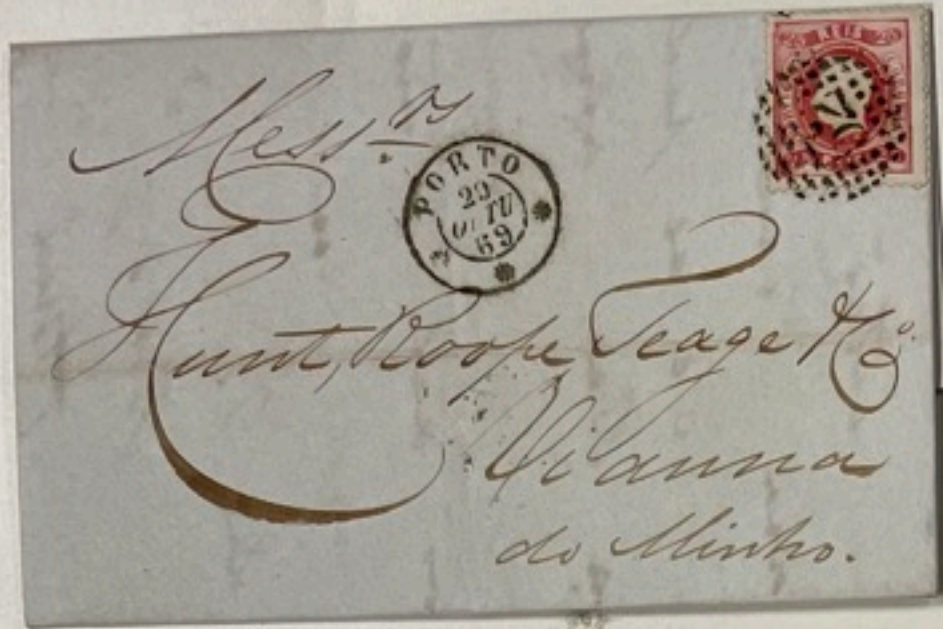 Mess.rs
PORTO
29
OUTU
69
Hunt, Roope Teage & Co.
Vianna
do Minho.
25 REIS 25